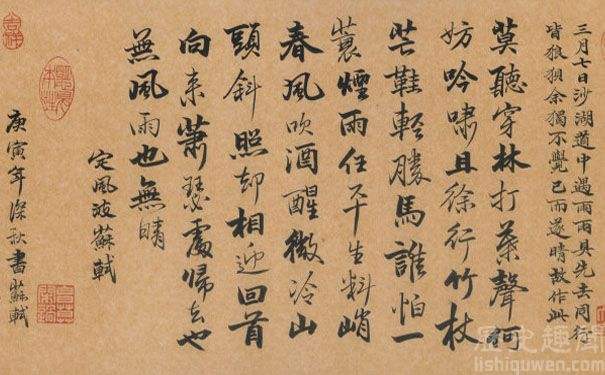 三月七日沙湖道中遇雨雨具先去同行
皆狼狽余獨不覺已而遂晴故作此
莫聽穿林打葉聲何
妨吟嘯且徐行竹杖
芒鞋輕勝馬誰怕一
蓑煙雨任平生料峭
春風吹酒醒微冷山
頭斜照却相迎回首
向来蕭瑟處歸去也
無風雨也無晴
定風波蘇軾
庚寅年深秋書蘇軾
吉祥
歷史趣聞
lishiquwen.com